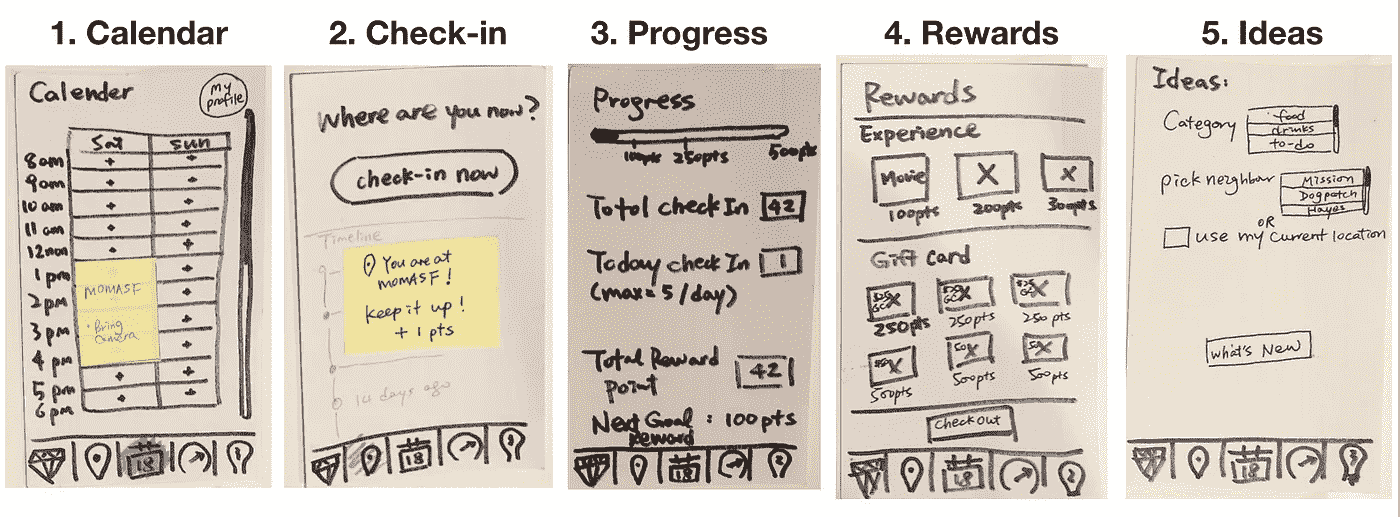 1. Calendar
Calender
my
profile
Sat
sun
8am
9am
10 am
11 am
12noon
1 pm
2 pm
3 pm
4 pm
5 pm
6 pm
MOMASF
• Bring
Camera
18
2. Check-in
Where are you now?
check-in now
Timeline
You are at
MOMASF!
keep it up!
+ 1 pts
14 days ago
18
3. Progress
Progress
100pts
250pts
500pts
Total check In 42
Today check In 1
(max=5/day)
Total Reward
Point 42
Next Goal : 100pts
Reward
18
4. Rewards
Rewards
Experience
Movie
X
X
100pts
200pts
300pts
Gift Card
250pts
250pts
250pts
500pts
500pts
500pts
check Out
18
5. Ideas
Ideas:
Category
food
drinks
to-do
pick neighbor
Mission
Dogpatch
Hayes
OR
use my current location
what's New
18